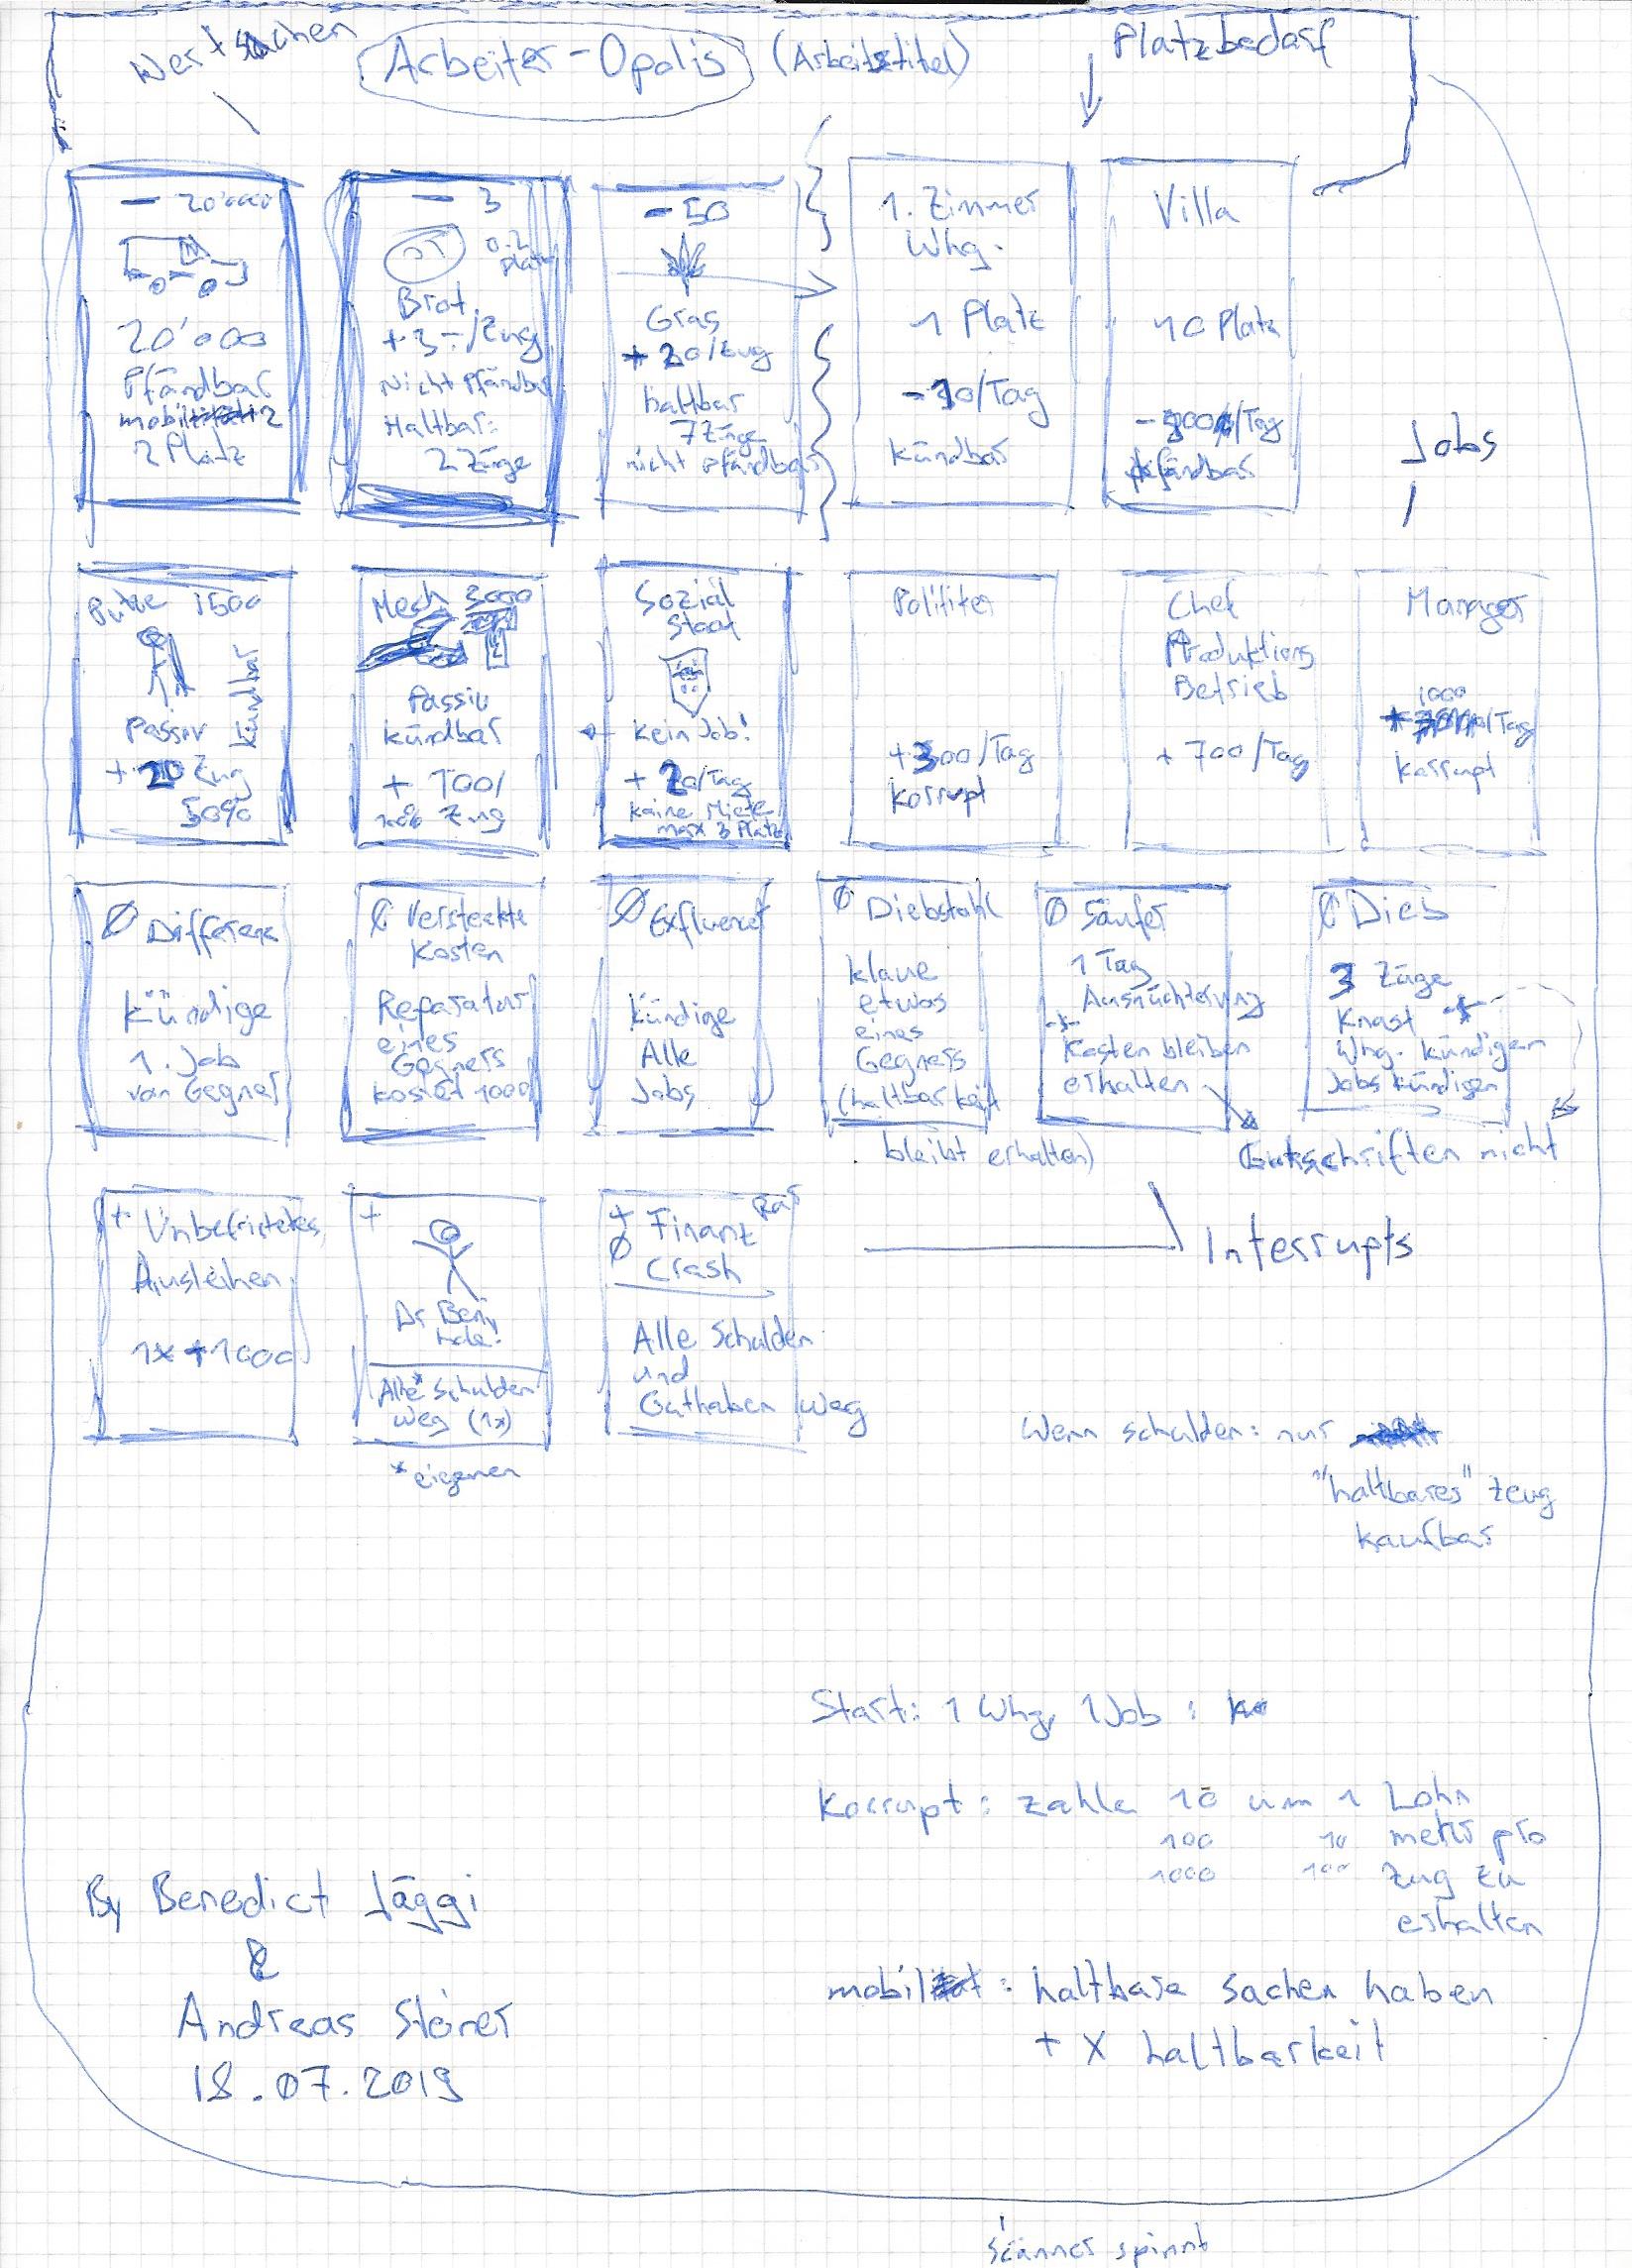 Wertsachen
Arbeiter-Opolis (Arbeitstitel)
Platzbedarf
- 20'000
20'000
Pfändbar
2 Platz
- 3
0.2 Platz
Brot
+3.-/Zug
Nicht Pfändbar
Haltbar:
2 Züge
- 50
Gras
+20/Zug
haltbar
7 Züge
nicht pfändbar
1. Zimmer
Whg.
1 Platz
-10/Tag
kündbar
Villa
10 Platz
/Tag
pfändbar
Jobs
1500
kündbar
Passiv
+20 Zug
50%
Mech 3000
Passiv
kündbar
+ 100/
100% Zug
Sozial
Staat
kein Job!
+ 20/Tag
keine Miete
max 3 Platz
Politiker
+300/Tag
korrupt
Chef
Produktions
Betrieb
+ 700/Tag
Manager
1000
/Tag
korrupt
Ø Differenz
kündige
1. Job
von Gegner
Ø Versteckte
Kosten
Reparatur
eines
Gegners
kostet 1000
Ø Exfluencer
kündige
Alle
Jobs
Ø Diebstahl
klaue
etwas
eines
Gegners
(haltbarkeit
bleibt erhalten)
Ø Säufer
1 Tag
Ausnüchterung
Kosten bleiben
erhalten
Gutschriften nicht
Ø Dieb
3 Züge
Knast
Whg. kündigen
Jobs kündigen
+ Unbefristetes
Ausleihen
1x +1000
+
Alle* Schulden
weg (1x)
*eigenen
+ Finanz
Ø Crash
Rar
Alle Schulden
und
Guthaben weg
Interrupts
Wenn schulden: nur
"haltbares" zeug
kaufbar
Start: 1 Whg, 1 Job :
Korrupt: zahle 10 um 1 Lohn
100 10 mehr pro
1000 100 zug zu
erhalten
By Benedict Jäggi
&
Andreas Störer
18.07.2019
mobil : haltbare sachen haben
+ X haltbarkeit
scanner spinnt